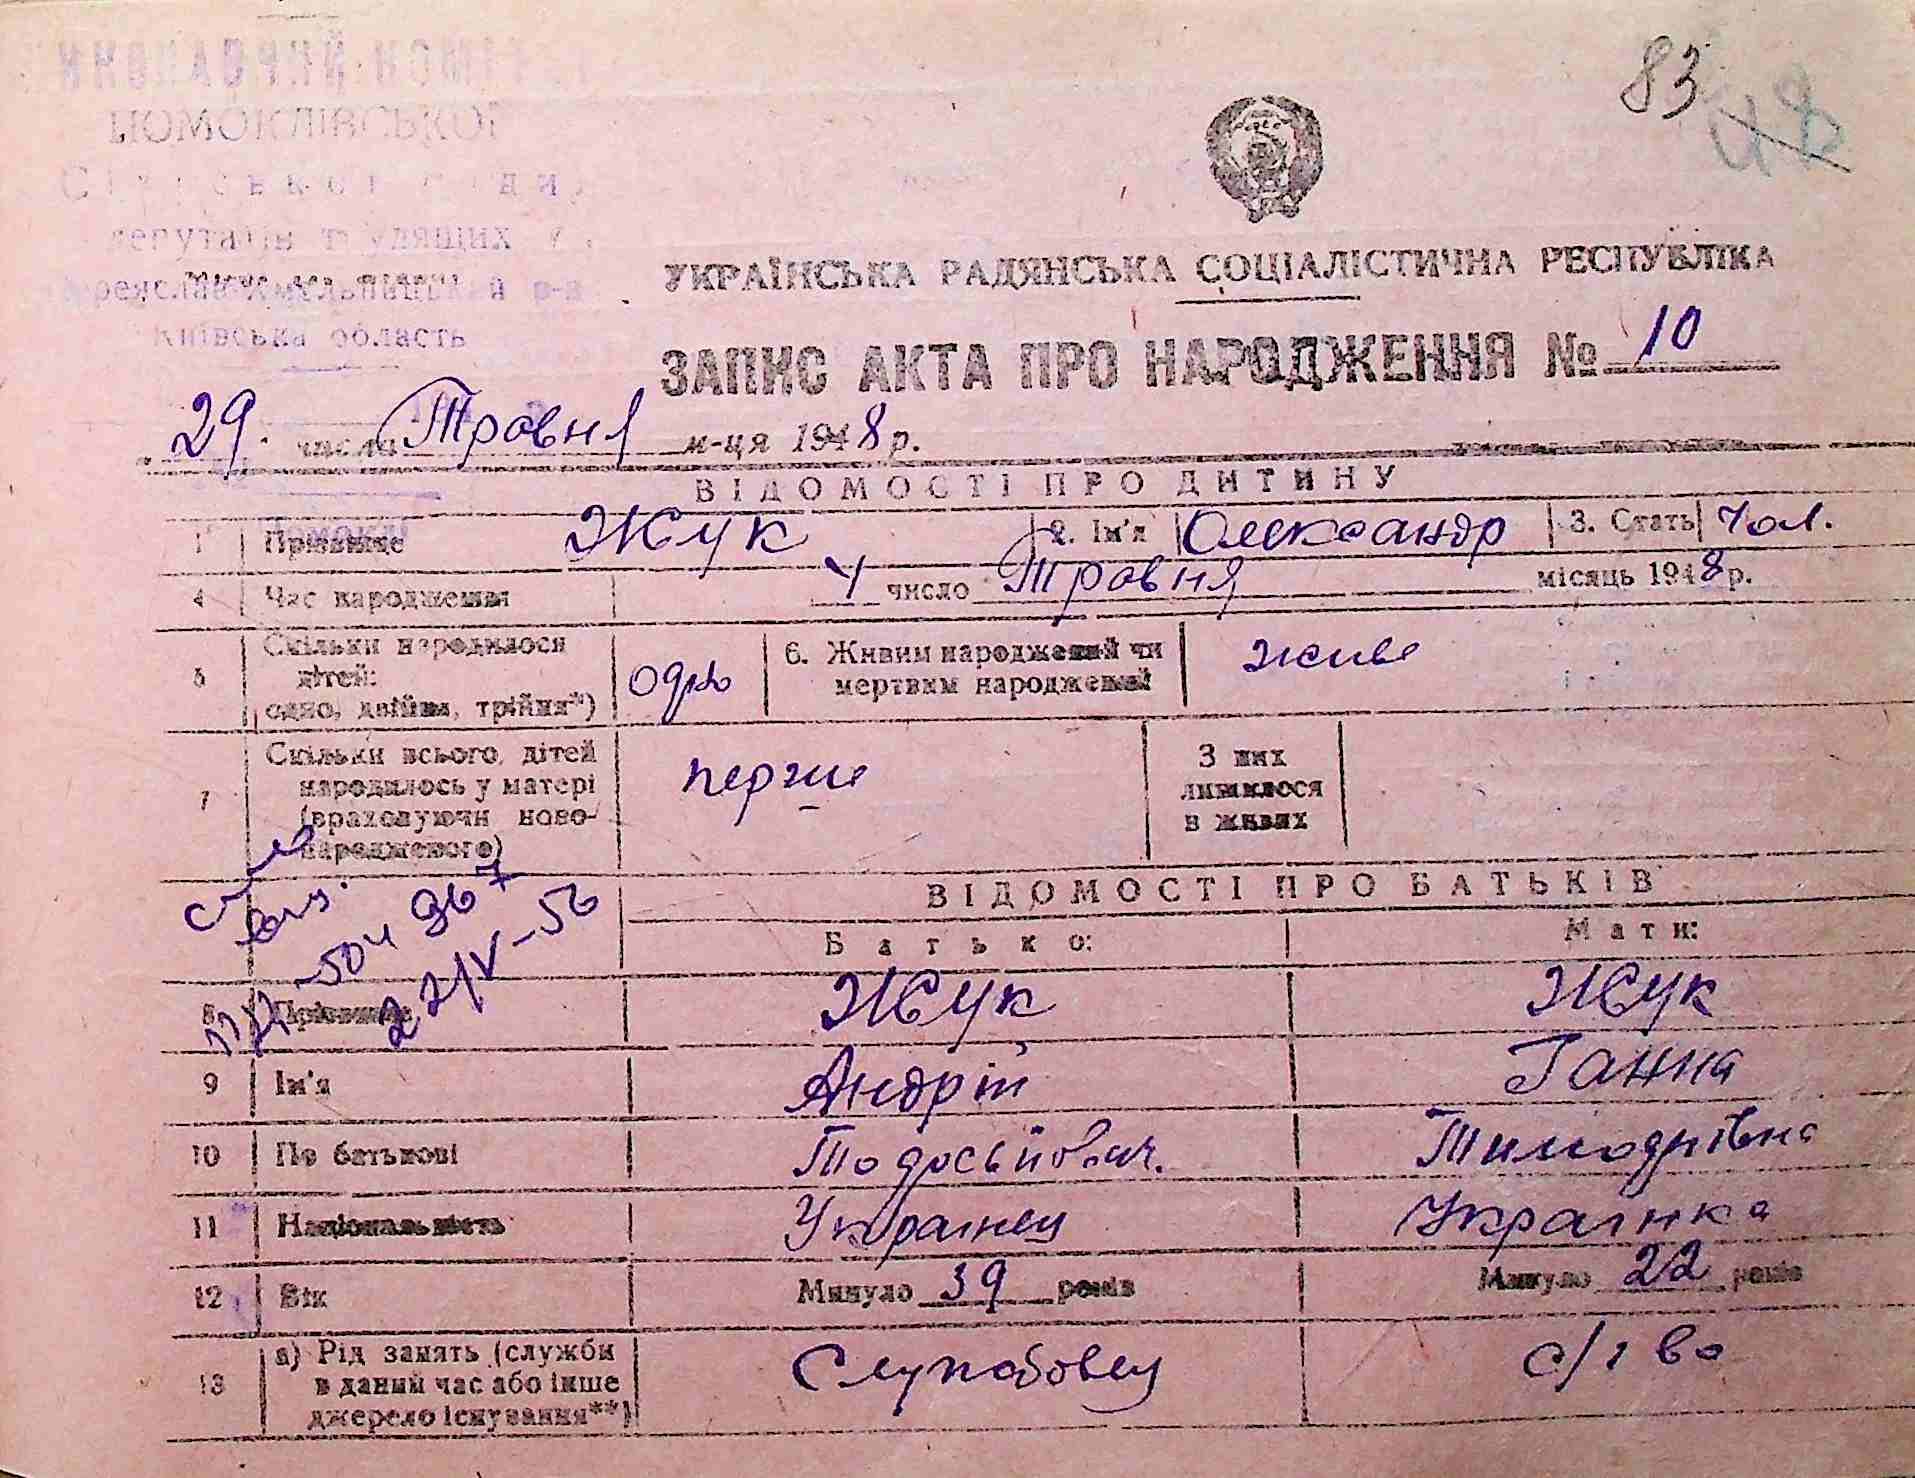 83 48
ПОМОКЛІВСЬКОЇ
депутатів трудящих
Київська область
УКРАЇНСЬКА РАДЯНСЬКА СОЦІАЛІСТИЧНА РЕСПУБЛІКА
ЗАПИС АКТА ПРО НАРОДЖЕННЯ № 10
29. числа Травня м-ця 1948 р.
ВІДОМОСТІ ПРО ДИТИНУ
1 Прізвище Жук 2. Ім'я Олександр 3. Стать чол.
4 Час народження 4 число Травня місяць 1948 р.
5 Скільки народилося
дітей:
одно, двійня, трійня**) одно 6. Живим народжений чи
мертвим народжений живе
7 Скільки всього дітей
народилось у матері
(враховуючи ново-
народженого) перше З них
лишилося
в живих
504 967
22/V-56
ВІДОМОСТІ ПРО БАТЬКІВ
Батько: Мати:
8 Прізвище Жук Жук
9 Ім'я Андрій Ганна
10 По батькові Тодосьйович. Тимофіївна
11 Національність Українец Українка
12 Вік Минуло 39 років Минуло 22 років
13 а) Рід занять (служби
в даний час або інше
джерело існування**) Службовец с/г во